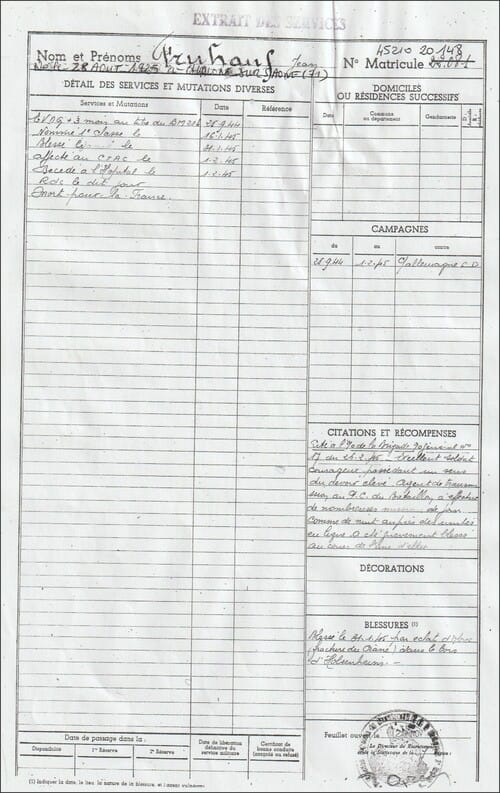 EXTRAIT DES SERVICES
Nom et Prénoms Fruhauf Jean
Né le 28 AOUT 1925 à CHALONS SUR SAONE (71)
45210 20148
N° Matricule
DÉTAIL DES SERVICES ET MUTATIONS DIVERSES
Services et Mutations Date Référence
EVDG + 3 mois au titre du BM 28.9.44
Nommé 1° classe le 16.1.45
Blessé le 31.1.45
affecté au CTAC le 1.2.45
Décédé à l'Hopital le 1.2.45
Rdc le dit jour
Mort pour la France.
DOMICILES
OU RÉSIDENCES SUCCESSIFS
Date Commune ou département Gendarmerie D. R.
CAMPAGNES
du au contre
28.9.44 1.2.45 C/allemagne C D
CITATIONS ET RÉCOMPENSES
Cité à l'O de la Brigade
17 du 25.2.45 - Excellent soldat
courageux, possédant un sens
du devoir élevé. Agent de transmis
sion, au P.C. du Bataillon, a effectué
de nombreuses missions de jour
comme de nuit auprès des unités
en ligne. A été grièvement blessé
au cours de l'une d'elles
DÉCORATIONS
BLESSURES (1)
Blessé le 31.1.45 par eclat d'obus
(fracture du crâne) dans le bois
d'Elsenheim. -
Date de passage dans la :
Disponibilité 1re Réserve 2e Réserve
Date de libération définitive du service militaire
Certificat de bonne conduite (accepté ou refusé)
Feuillet ouvert le
Le Directeur du Recrutement
(1) Indiquer la date, le lieu, la nature de la blessure, et l'agent vulnérant.